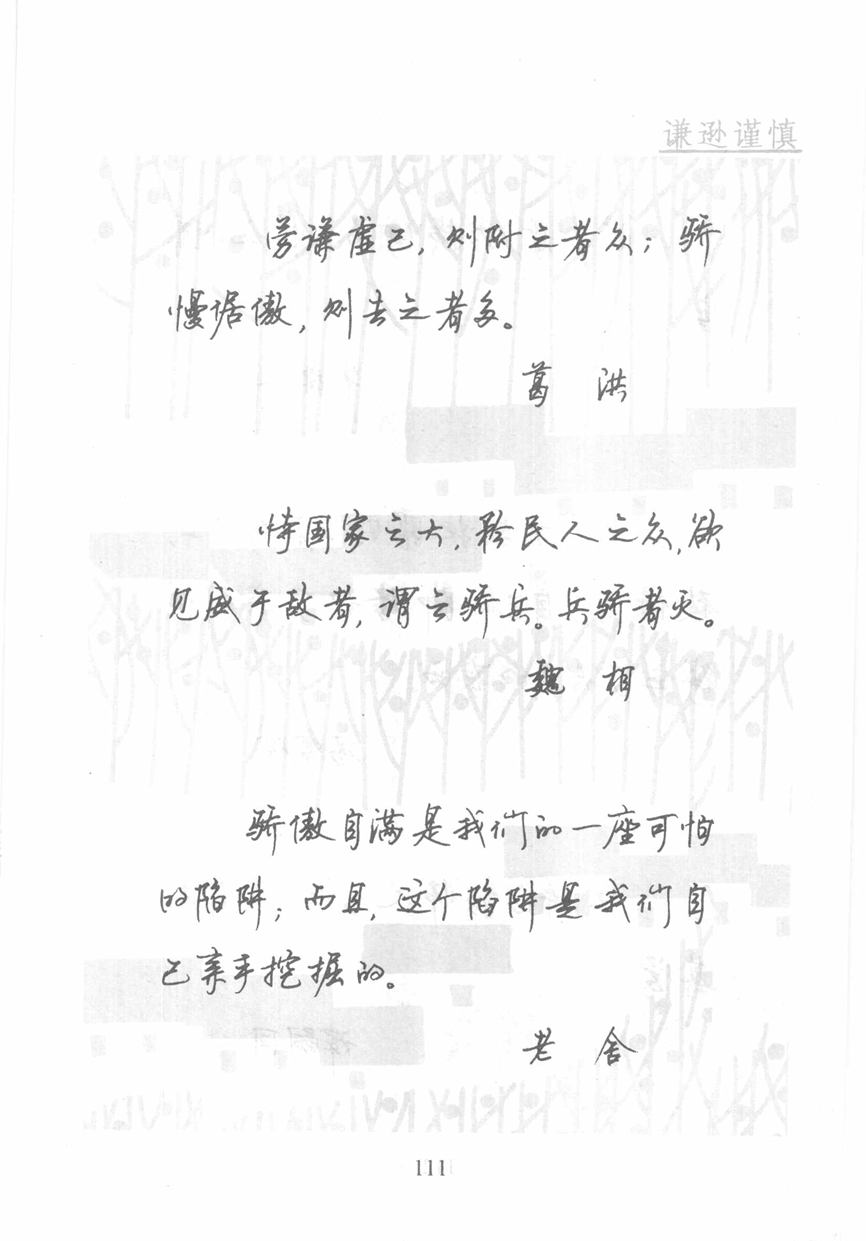 谦逊谨慎
劳谦虚己，则附之者众；骄
慢倨傲，则去之者多。
葛 洪
恃国家之大，矜民人之众，欲
见威于敌者，谓之骄兵。兵骄者灭。
魏 相
骄傲自满是我们的一座可怕
的陷阱；而且，这个陷阱是我们自
己亲手挖掘的。
老 舍
111